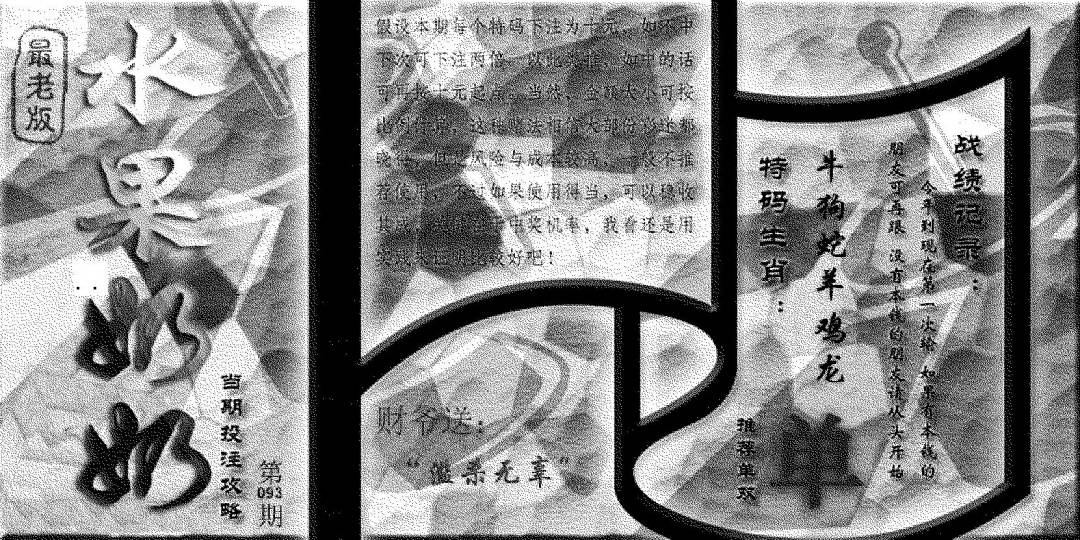 最老版
水果奶奶
当期投注攻略
第
093
期
假设本期每个特码下注为十元，如不中
下次可下注两倍，以此类推，如中的话
可再按十元起点。当然，金额大小可按
比例作算，这种赌法相信大部份彩迷都
晓得，但是风险与成本较高，一般不推
荐使用，不过如果使用得当，可以稳收
其成
中奖机率，我看还是用
实战来证明比较好吧！
财爷送：
“滥杀无辜”
战绩记录：
今年到现在第一次输 如果有本钱的
朋友可再跟 没有本钱的朋友请从大开始
牛狗蛇羊鸡龙
特码生肖：
推荐单双
单